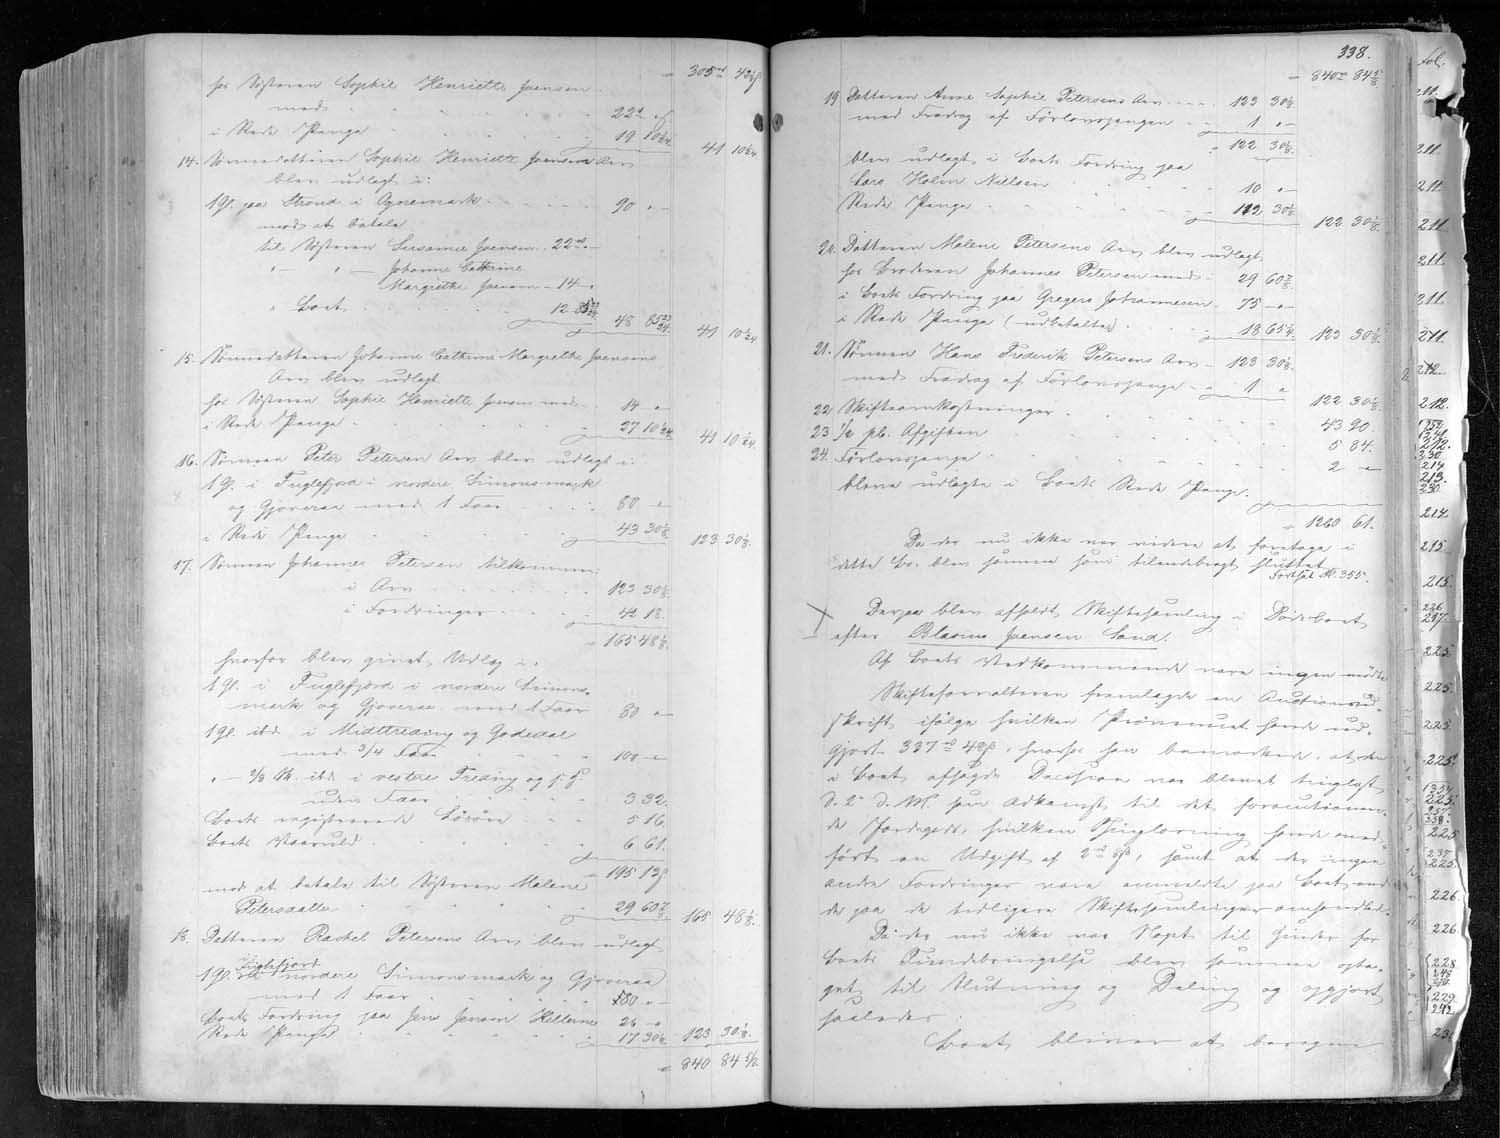 305 rd 43 ß
for Søsteren Sophie Henriette Joensen
med 22 rd "
i Rede Penge 19 10 1/24. 41 10 1/24.
14. Sønnedatteren Sophie Henriette Joensens Arv
blev udlagt i:
1 Gl. paa Strond i Ognemark 90 " -
mod at betale
til Søsteren Susanne Joensen 22 rd " -
" - " - Johanne Cathrine
Margrethe Joensen - 14 - "
" Boet 12 85 23/24. 48 85 23/24. 41 10 1/24.
15. Sønnedatteren Johanne Cathrine Margrethe Joensens
Arv blev udlagt
hos Søsteren Sophie Henriette Joensen med 14 " -
i Rede Penge 27 10 1/24. 41 10 1/24.
16. Sønnen Peter Petersen Arv blev udlagt i:
1 Gl. i Fuglefjord i nordere Simonsmark
og Gjoveraa med 1 Faar 80 " -
i Rede Penge 43 30 1/8. 123 30 1/8.
17. Sønnen Johannes Petersen tilkommer:
i Arv 123 30 1/8
i Fordringer 42 18.
165 48 1/8.
hvorfor blev givet Udlæg i:
1 Gl. i Fuglefjord i nordere Simons-
mark og Gjoveraa med 1 Faar 80 " -
1 Gl. ibd. i Midttreding og Godedal
med 3/4 Faar 100 - " -
" - 2/3 Sk. ibd i vestere Treding og
uden Faar 3 32.
Boets registrerede Løsøre 5 16.
Boets Vaaruld 6 61.
195 13 ß
mod at betale til Søsteren Malene
Petersdatter 29 60 7/8 165 48 1/8.
18. Datteren Rachel Petersens Arv blev udlagt
Fuglefjord
1 Gl. i nordere Simonsmark og Gjoveraa
med 1 Faar 80 " -
Boets Fordring paa Jens Jensen Hellerne 26 - "
Rede Penge 17 30 1/8. 123 30 1/8.
840 84 5/8.
338.
840 rd 84 5/8.
19 Datteren Anne Sophie Petersens Arv 123 30 1/8.
med Fradrag af Forlovspengen 1 " -
122 30 1/8.
blev udlagt i Boets Fordring paa
Lars Holm Nielsen 10 " -
Rede Penge 112 30 1/8. 122 30 1/8.
20. Datteren Malene Petersens Arv blev udlagt
hos Broderen Johannes Petersen med 29 60 7/8.
i Boets Fordring paa Gregers Johannesen 75 - " -
i Rede Penge (udbetaltes) 18 65 1/4. 123 30 1/8.
21. Sønnen Hans Frederik Petersens Arv 123 30 1/8.
med Fradrag af Forlovspenge 1 "
122 30 1/8.
22 Skifteomkostninger 43 90.
23 1/2 pCt. Afgiften 5 84.
24. Forlovspenge 2 - "
bleve udlagte i Boets Rede Penge.
1260 61.
Da der nu ikke var videre at foretage i
dette Bo. blev samme som tilendebragt sluttet
Fortsat Fl. 355.
Derpaa blev afholdt Skiftesamling i Dødsboet
efter Blasius Joensen Sand.
Af Boets Vedkommende vare ingen mødte
Skifteforvalteren fremlagde en Auctionsud-
skrift, ifølge hvilken Provenuet havde ud-
gjort 337 rd 48 ß, hvorfor han bemærkede, at den
i Boet afsagde Decision var blevet tinglæst
d. 2 d. M. som Adkomst til det foraucioner-
de Jordegods, hvilken Thinglæsning havde med-
ført en Udgift af 2 rd 8 ß, samt at der ingen
andre Fordringer vare anmeldte paa Boet, end
de paa de tidligere Skiftesamlinger omhandlede.
Da der nu ikke var Haab til Hinder for
Boets Tilendebringelse blev samme opta-
get til Slutning og Deling og opgjort
saaledes:
Boet bliver at beregne
Fol.
211.
211.
211.
211.
211.
211.
211.
212.
212.
212.
230
214
213.
230.
214.
215.
215.
226
217.
225.
225.
225.
225.
225.
225
237
225.
226.
226.
228
248
229
242.